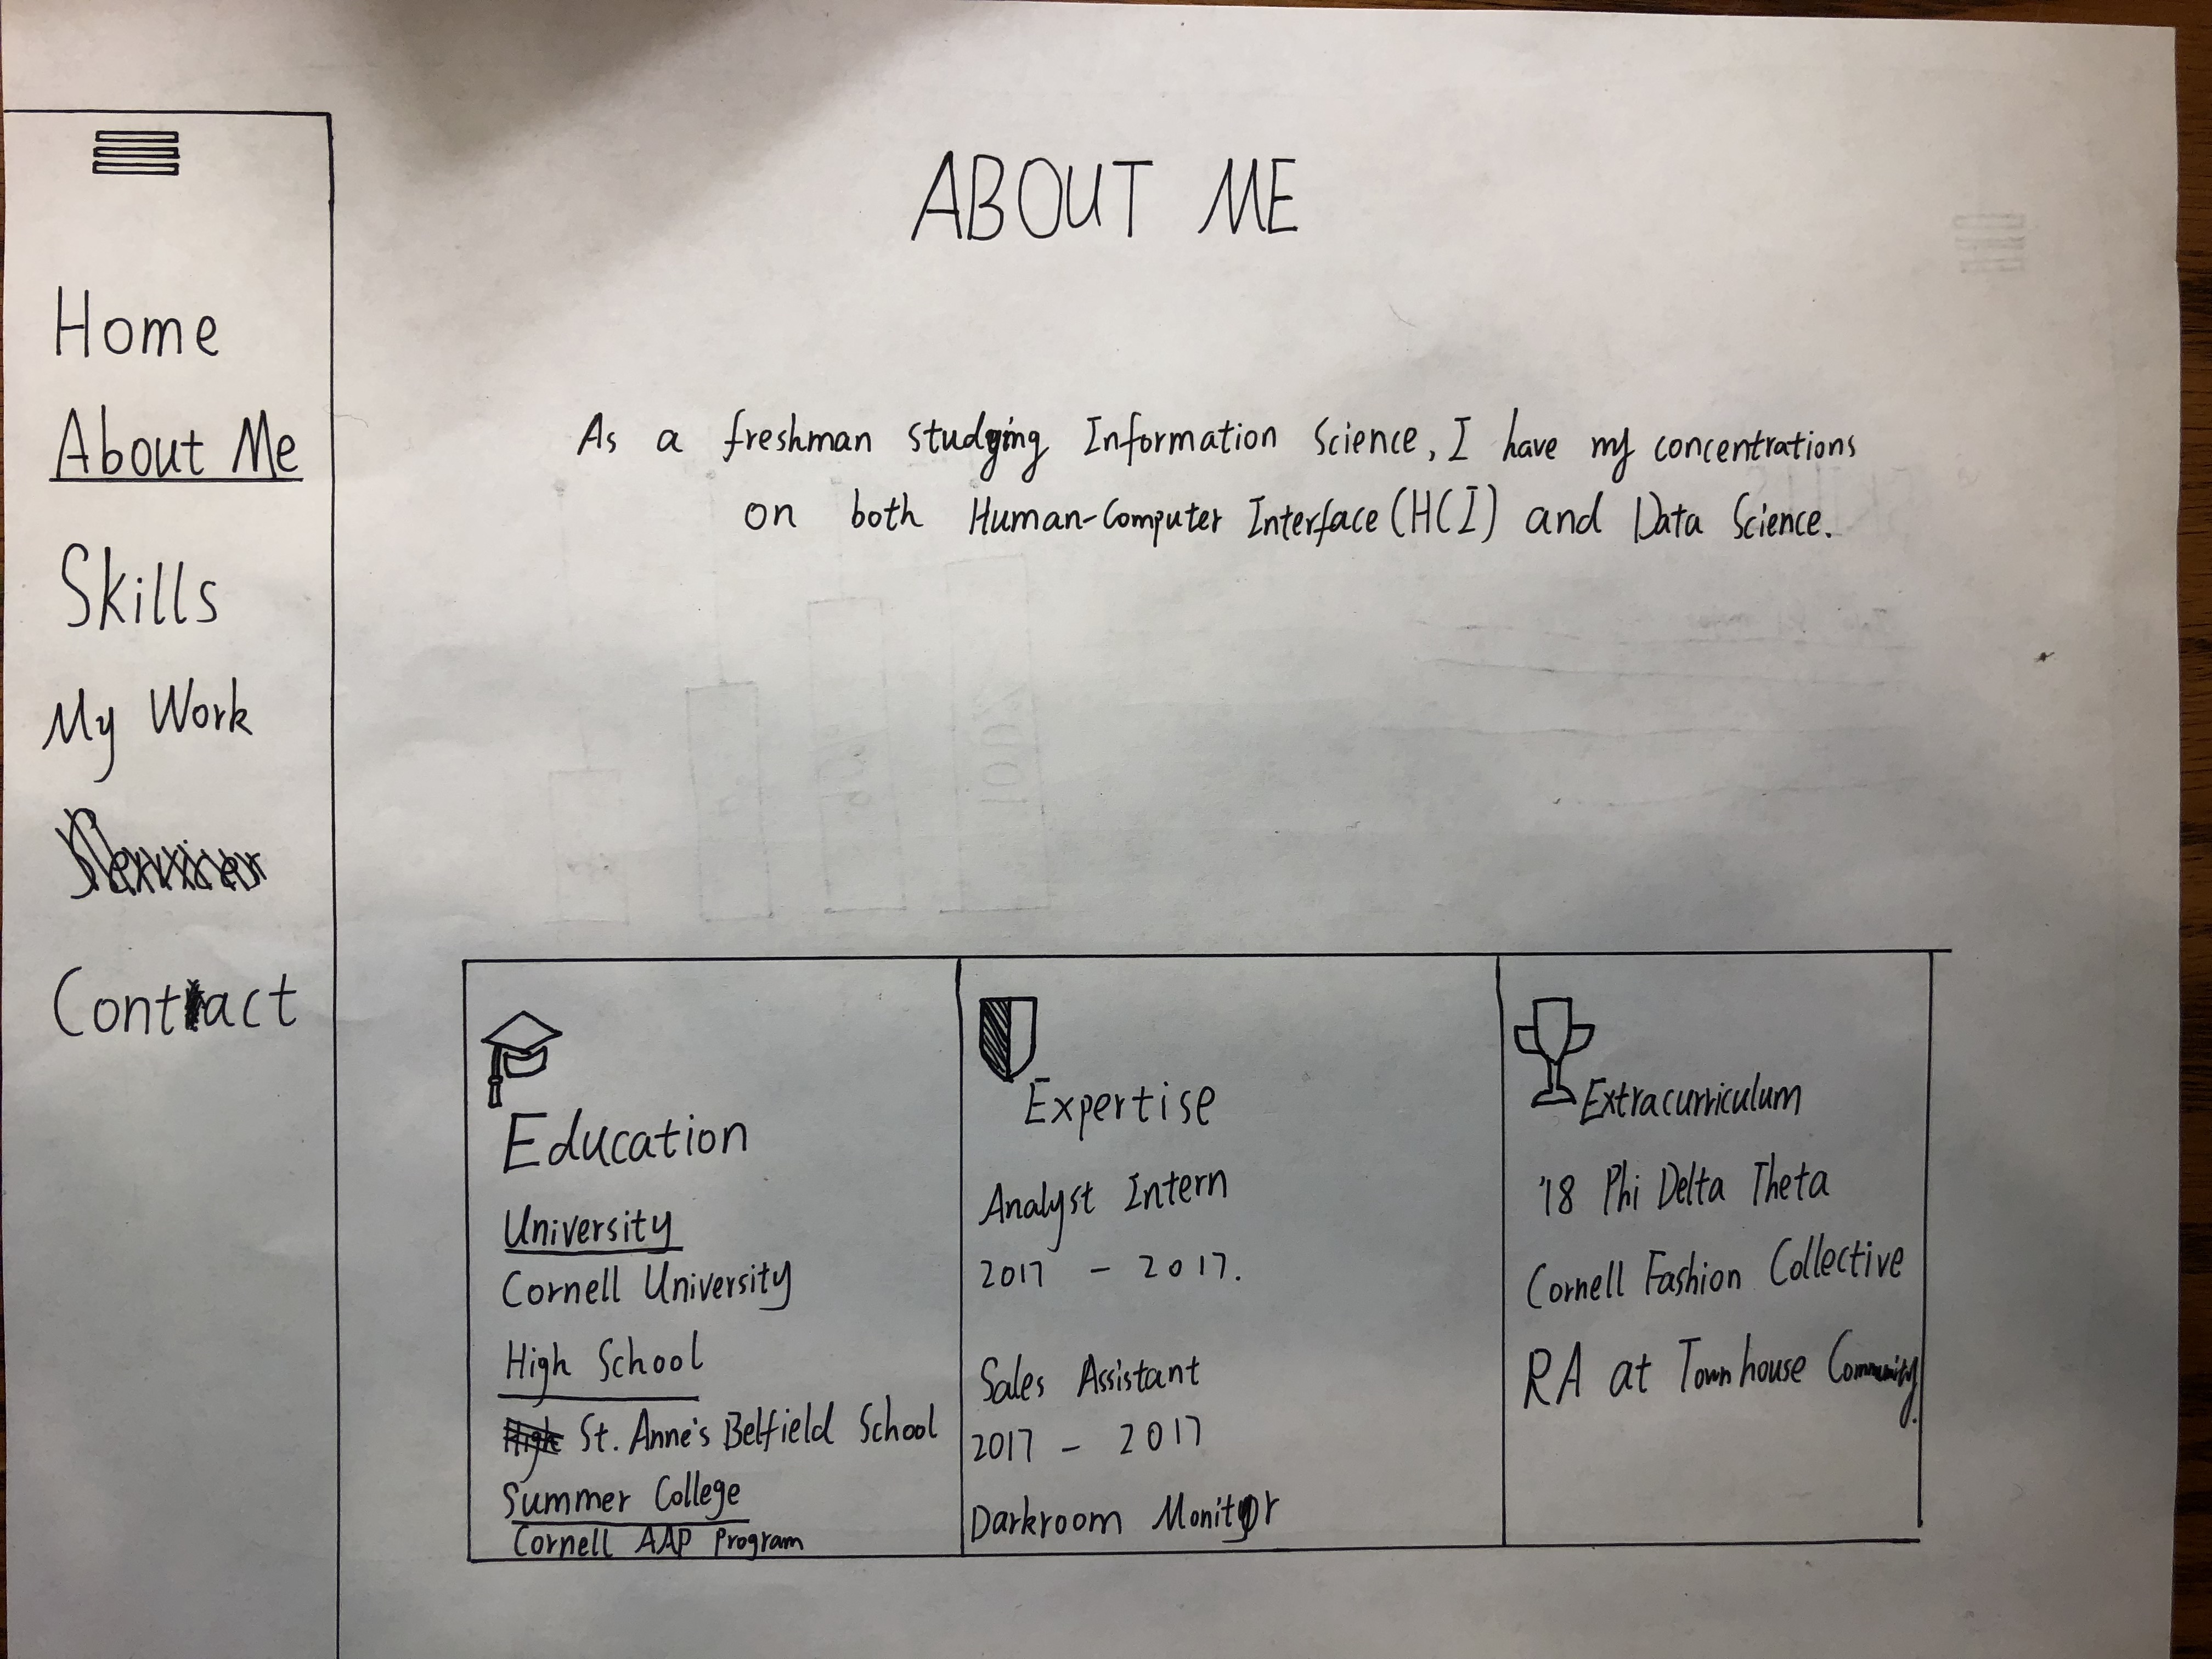 Home
About Me
Skills
My Work
Contact
ABOUT ME
As a freshman studying Information Science, I have my concentrations
on both Human-Computer Interface (HCI) and Data Science.
Education
University
Cornell University
High School
St. Anne's Belfield School
Summer College
Cornell AAP Program
Expertise
Analyst Intern
2017 - 2017.
Sales Assistant
2017 - 2017
Darkroom Monitor
Extracurriculum
'18 Phi Delta Theta
Cornell Fashion Collective
RA at Townhouse Community.